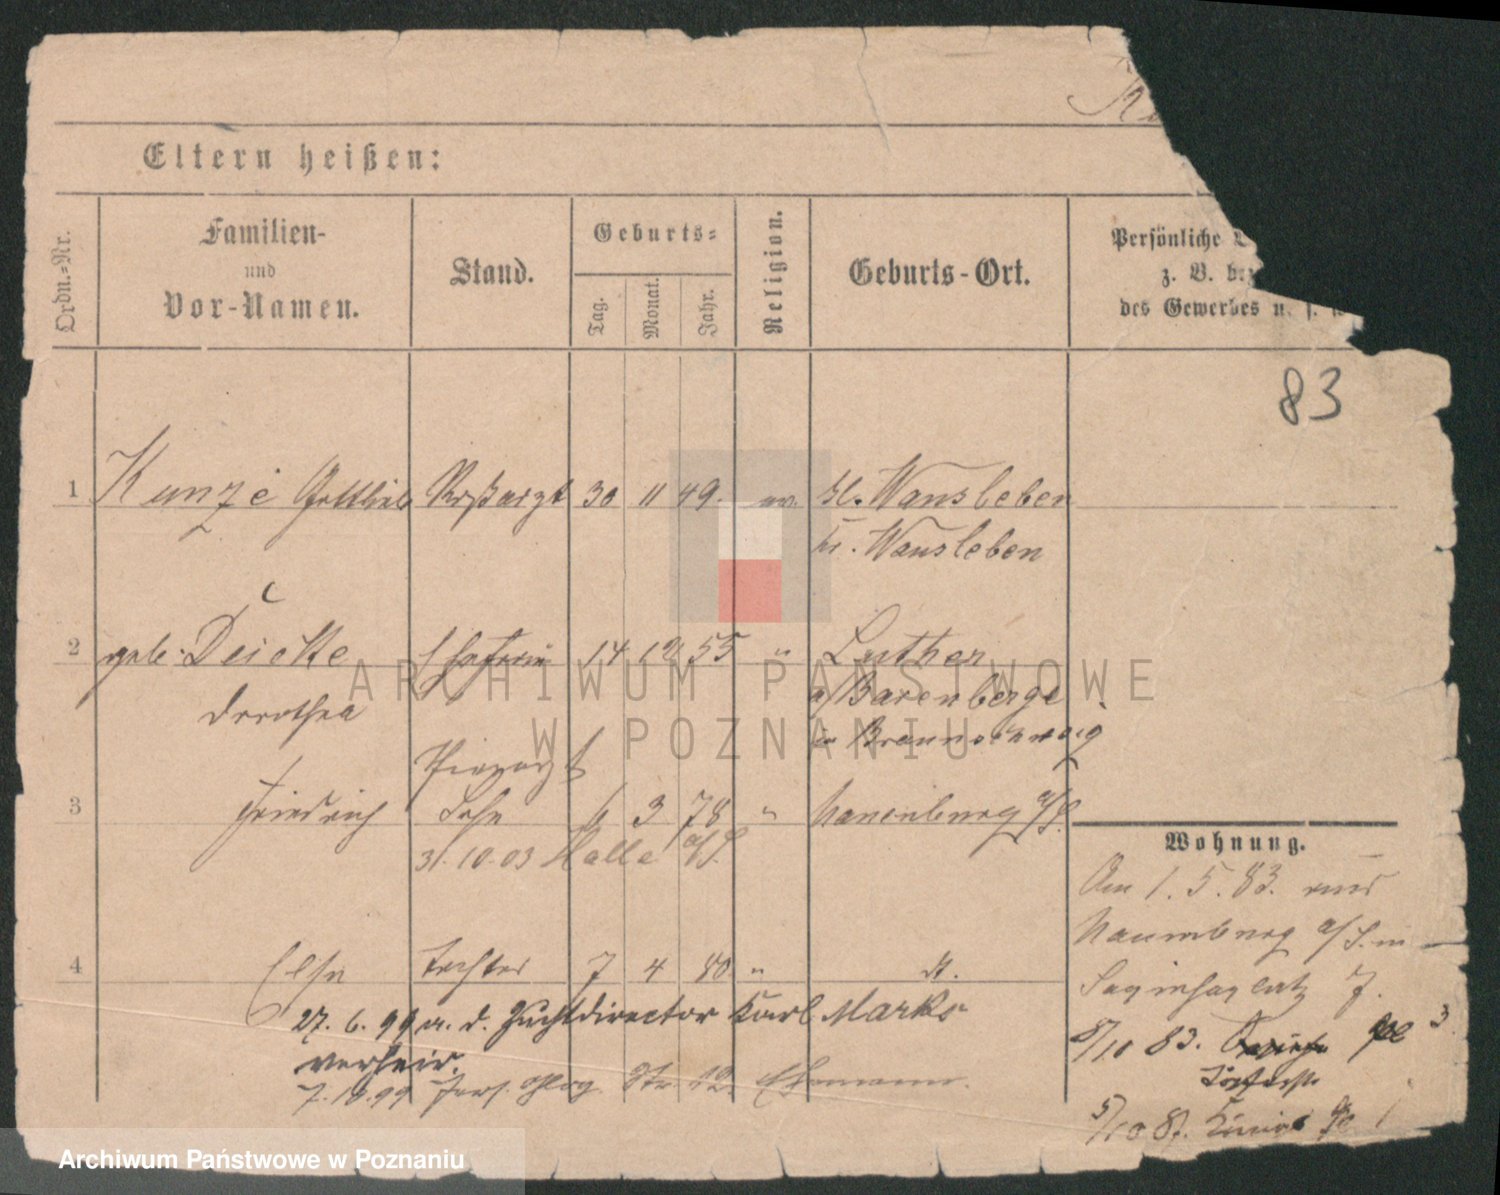 Eltern heißen:
Ordn.-Nr.
Familien-
und
Vor-Namen.
Stand.
Geburts-
Tag.
Monat.
Jahr.
Religion.
Geburts-Ort.
Persönliche
z. B.
des Gewerbes u. s.
83
1 Kunze Gottlieb Roßarzt 30 11 49. ev. Kl. Wansleben
Kr. Wansleben
2 geb. Deicke 14 12 55 " Luther
Dorothea a/Barenberge
in Braunschweig
Tierarzt
3 Friedrich Sohn 6 3 78 " Naumburg a/S.
31.10.03 Halle a/S.
Wohnung.
Am 1. 5. 83. von
Naumburg a/S. in
7.
4 Else Tochter 7 4 80 " dt.
27. 6. 99 m. d. Zuchtdirector Karl Marks
verheir.
7.10.99 Str. 12
8/10 83. 3.
5/10 87.
ARCHIWUM PAŃSTWOWE
W POZNANIU
Archiwum Państwowe w Poznaniu